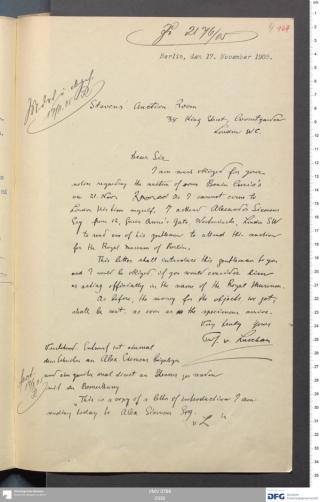 2176/05
Berlin, den 17. November 1905.
Stevens' Auction Room
38 King Street Coventgarden
London W.C.
Dear Sir.
I am much obliged for your
notice regarding the auction of some Benin Curio's
on 21. Nov. As I cannot come to
London this time myself, I asked Alexander Siemens
Esq. from 12, Queen Anne's Gate Westminster, London SW
to send one of his gentlemen to attend this auction
for the Royal Museum of Berlin.
This letter shall introduce this gentleman to you
and I would be obliged if you would consider him
as acting officially in the name of the Royal Museum.
As before, the money for the objects we get,
shall be sent as soon as the specimens arrive.
Very truly yours
v. Luschan
an Alex Siemens
und
mit der Bemerkung
"This is a copy of a letter of introduction I am
sending today to Alex Siemens Esq.
v L"
VMV 0788
DFG